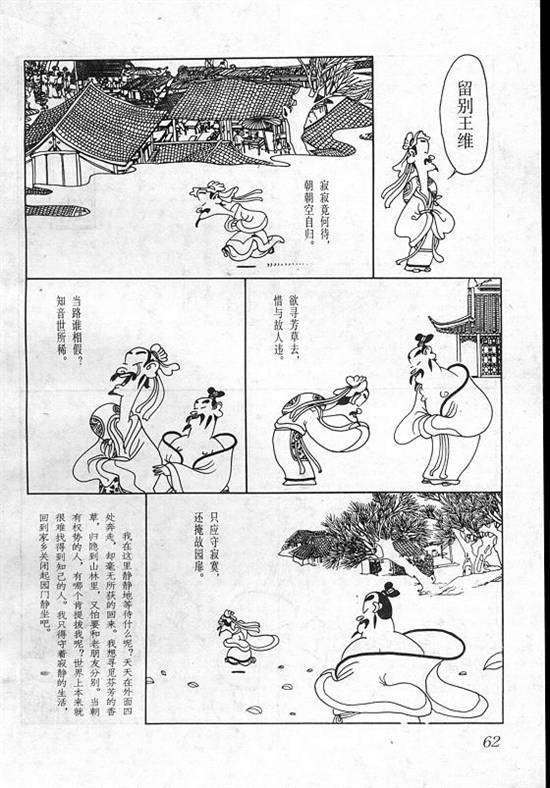 留别王维
寂寂竟何待，
朝朝空自归。
欲寻芳草去，
惜与故人违。
当路谁相假？
知音世所稀。
只应守寂寞，
还掩故园扉。
我在这里静静地等待什么呢？天天在外面四
处奔走，却毫无所获的回来。我想寻觅芬芳的香
草，归隐到山林里，又怕要和老朋友分别。当朝
有权势的人，有哪个肯提拔我呢？世界上本来就
很难找得到知己的人。我只得守着寂静的生活，
回到家乡关闭起园门静坐吧。
62